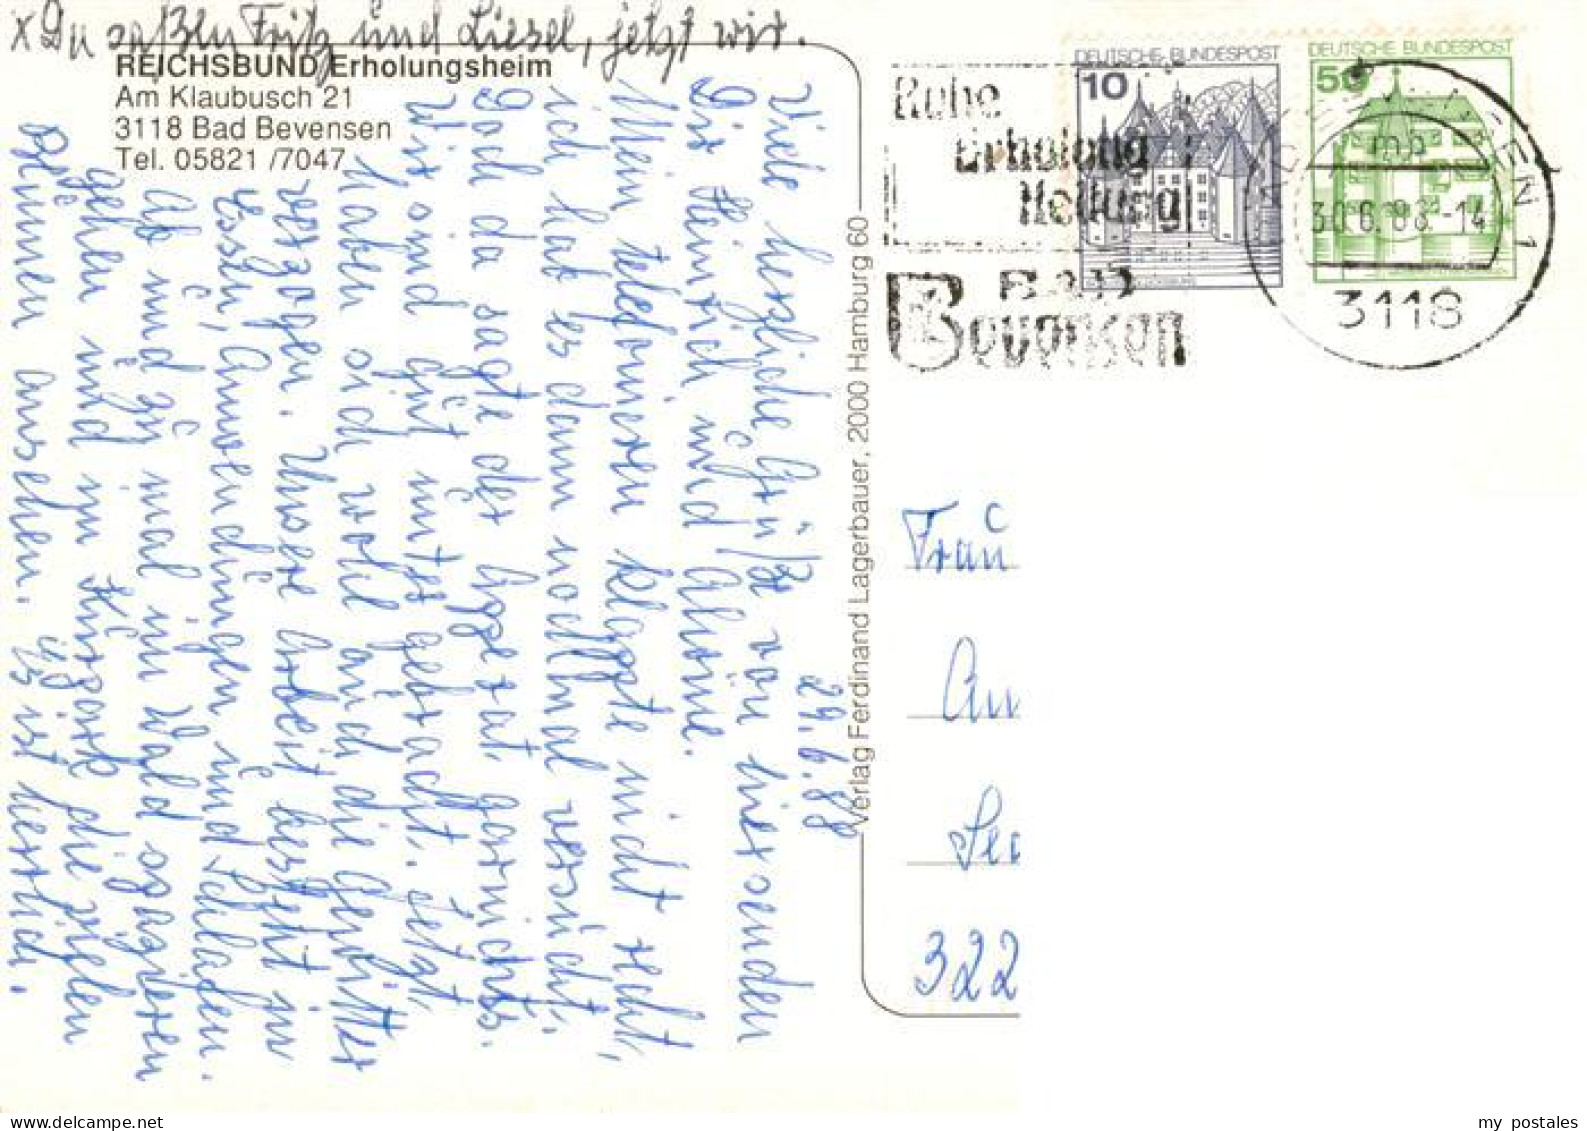 x Da saßen Fritz und Liesel, jetzt wir.
REICHSBUND Erholungsheim
Am Klaubusch 21
3118 Bad Bevensen
Tel. 05821 /7047
29.6.88
Viele herzliche Grüße von hier senden
Dir Heinrich und Alwine.
Mein telefonieren klappte nicht recht,
ich hat es dann nochmal versucht,
doch da sagte der Apperat garnichts.
Wir sind gut unter gebracht. Jetzt
haben sich wohl auch die Gewitter
verzogen. Unsere Arbeit besteht in
essen, Anwendungen und schlafen.
Ab und zu mal im Wald spazieren
gehen und im Kurpark die vielen
Blumen ansehen. Es ist herrlich.
Verlag Ferdinand Lagerbauer, 2000 Hamburg 60
DEUTSCHE BUNDESPOST
10
DEUTSCHE BUNDESPOST
50
Ruhe
Erholung
Heilung
Bad
Bevensen
mb
30.6.88.-14
1
3118
Frau
An
See
322
my postales